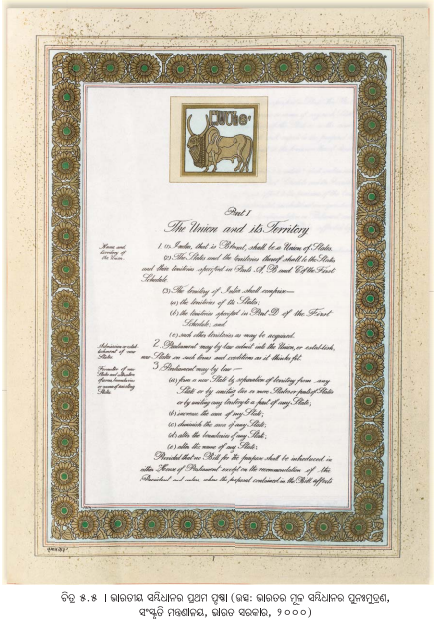 Part I
The Union and its Territory
Name and territory of the Union.
1. (1) India, that is Bharat, shall be a Union of States.
(2) The States and the territories thereof shall be the States
and their territories specified in Parts A, B and C of the First
Schedule.
(3) The territory of India shall comprise—
(a) the territories of the States;
(b) the territories specified in Part D of the First
Schedule; and
(c) such other territories as may be acquired.
Admission or establishment of new States.
2. Parliament may by law admit into the Union, or establish,
new States on such terms and conditions as it thinks fit.
3. Parliament may by law—
(a) form a new State by separation of territory from any
State or by uniting two or more States or parts of States
or by uniting any territory to a part of any State;
(b) increase the area of any State;
(c) diminish the area of any State;
(d) alter the boundaries of any State;
(e) alter the name of any State;
Provided that no Bill for the purpose shall be introduced in
either House of Parliament except on the recommendation of the
President and unless, where the proposal contained in the Bill affects
1
ଚିତ୍ର ୫.୫ । ଭାରତୀୟ ସମ୍ବିଧାନର ପ୍ରଥମ ପୃଷ୍ଠା (ଉତ୍ସ: ଭାରତର ମୂଳ ସମ୍ବିଧାନର ପୁନଃମୁଦ୍ରଣ,
ସଂସ୍କୃତି ମନ୍ତ୍ରଣାଳୟ, ଭାରତ ସରକାର, ୨୦୦୦)